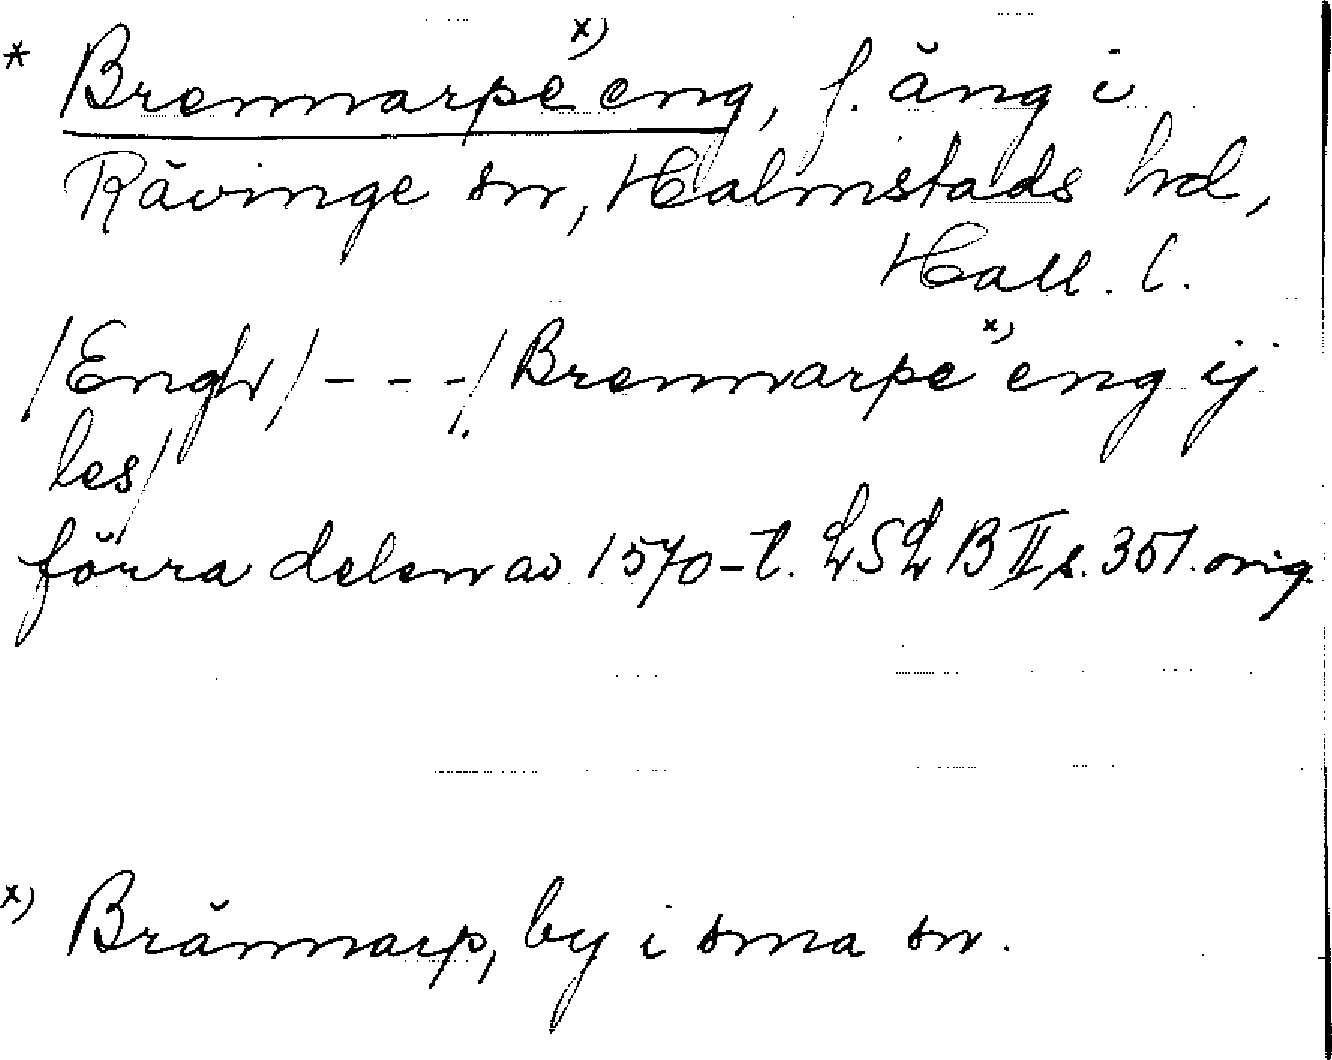 * Brennarpe x) eng, f. äng i
Rävinge sn, Halmstads hd,
Hall. l.
/Engh/ - - -/ Brennarpe x) eng ij
les/
förra delen av 1570-t. LSL B II s. 351. orig.
x) Brännarp, by i sma sn.